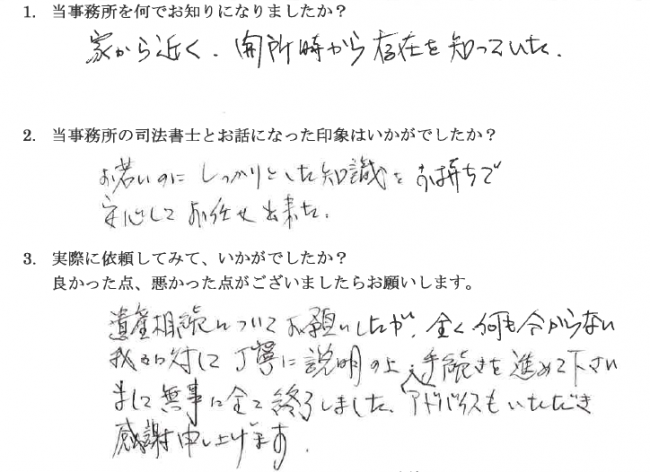 1. 当事務所を何でお知りになりましたか？
家から近く、開所時から存在を知っていた。
2. 当事務所の司法書士とお話になった印象はいかがでしたか？
お若いのにしっかりとした知識をお持ちで
安心してお任せ出来た。
3. 実際に依頼してみて、いかがでしたか？
良かった点、悪かった点がございましたらお願いします。
遺産相続についてお願いしたが、全く何も分からない
我々に対して丁寧に説明の上、手続きを進めて下さい
まして無事に全て終了しました。アドバイスもいただき
感謝申し上げます。